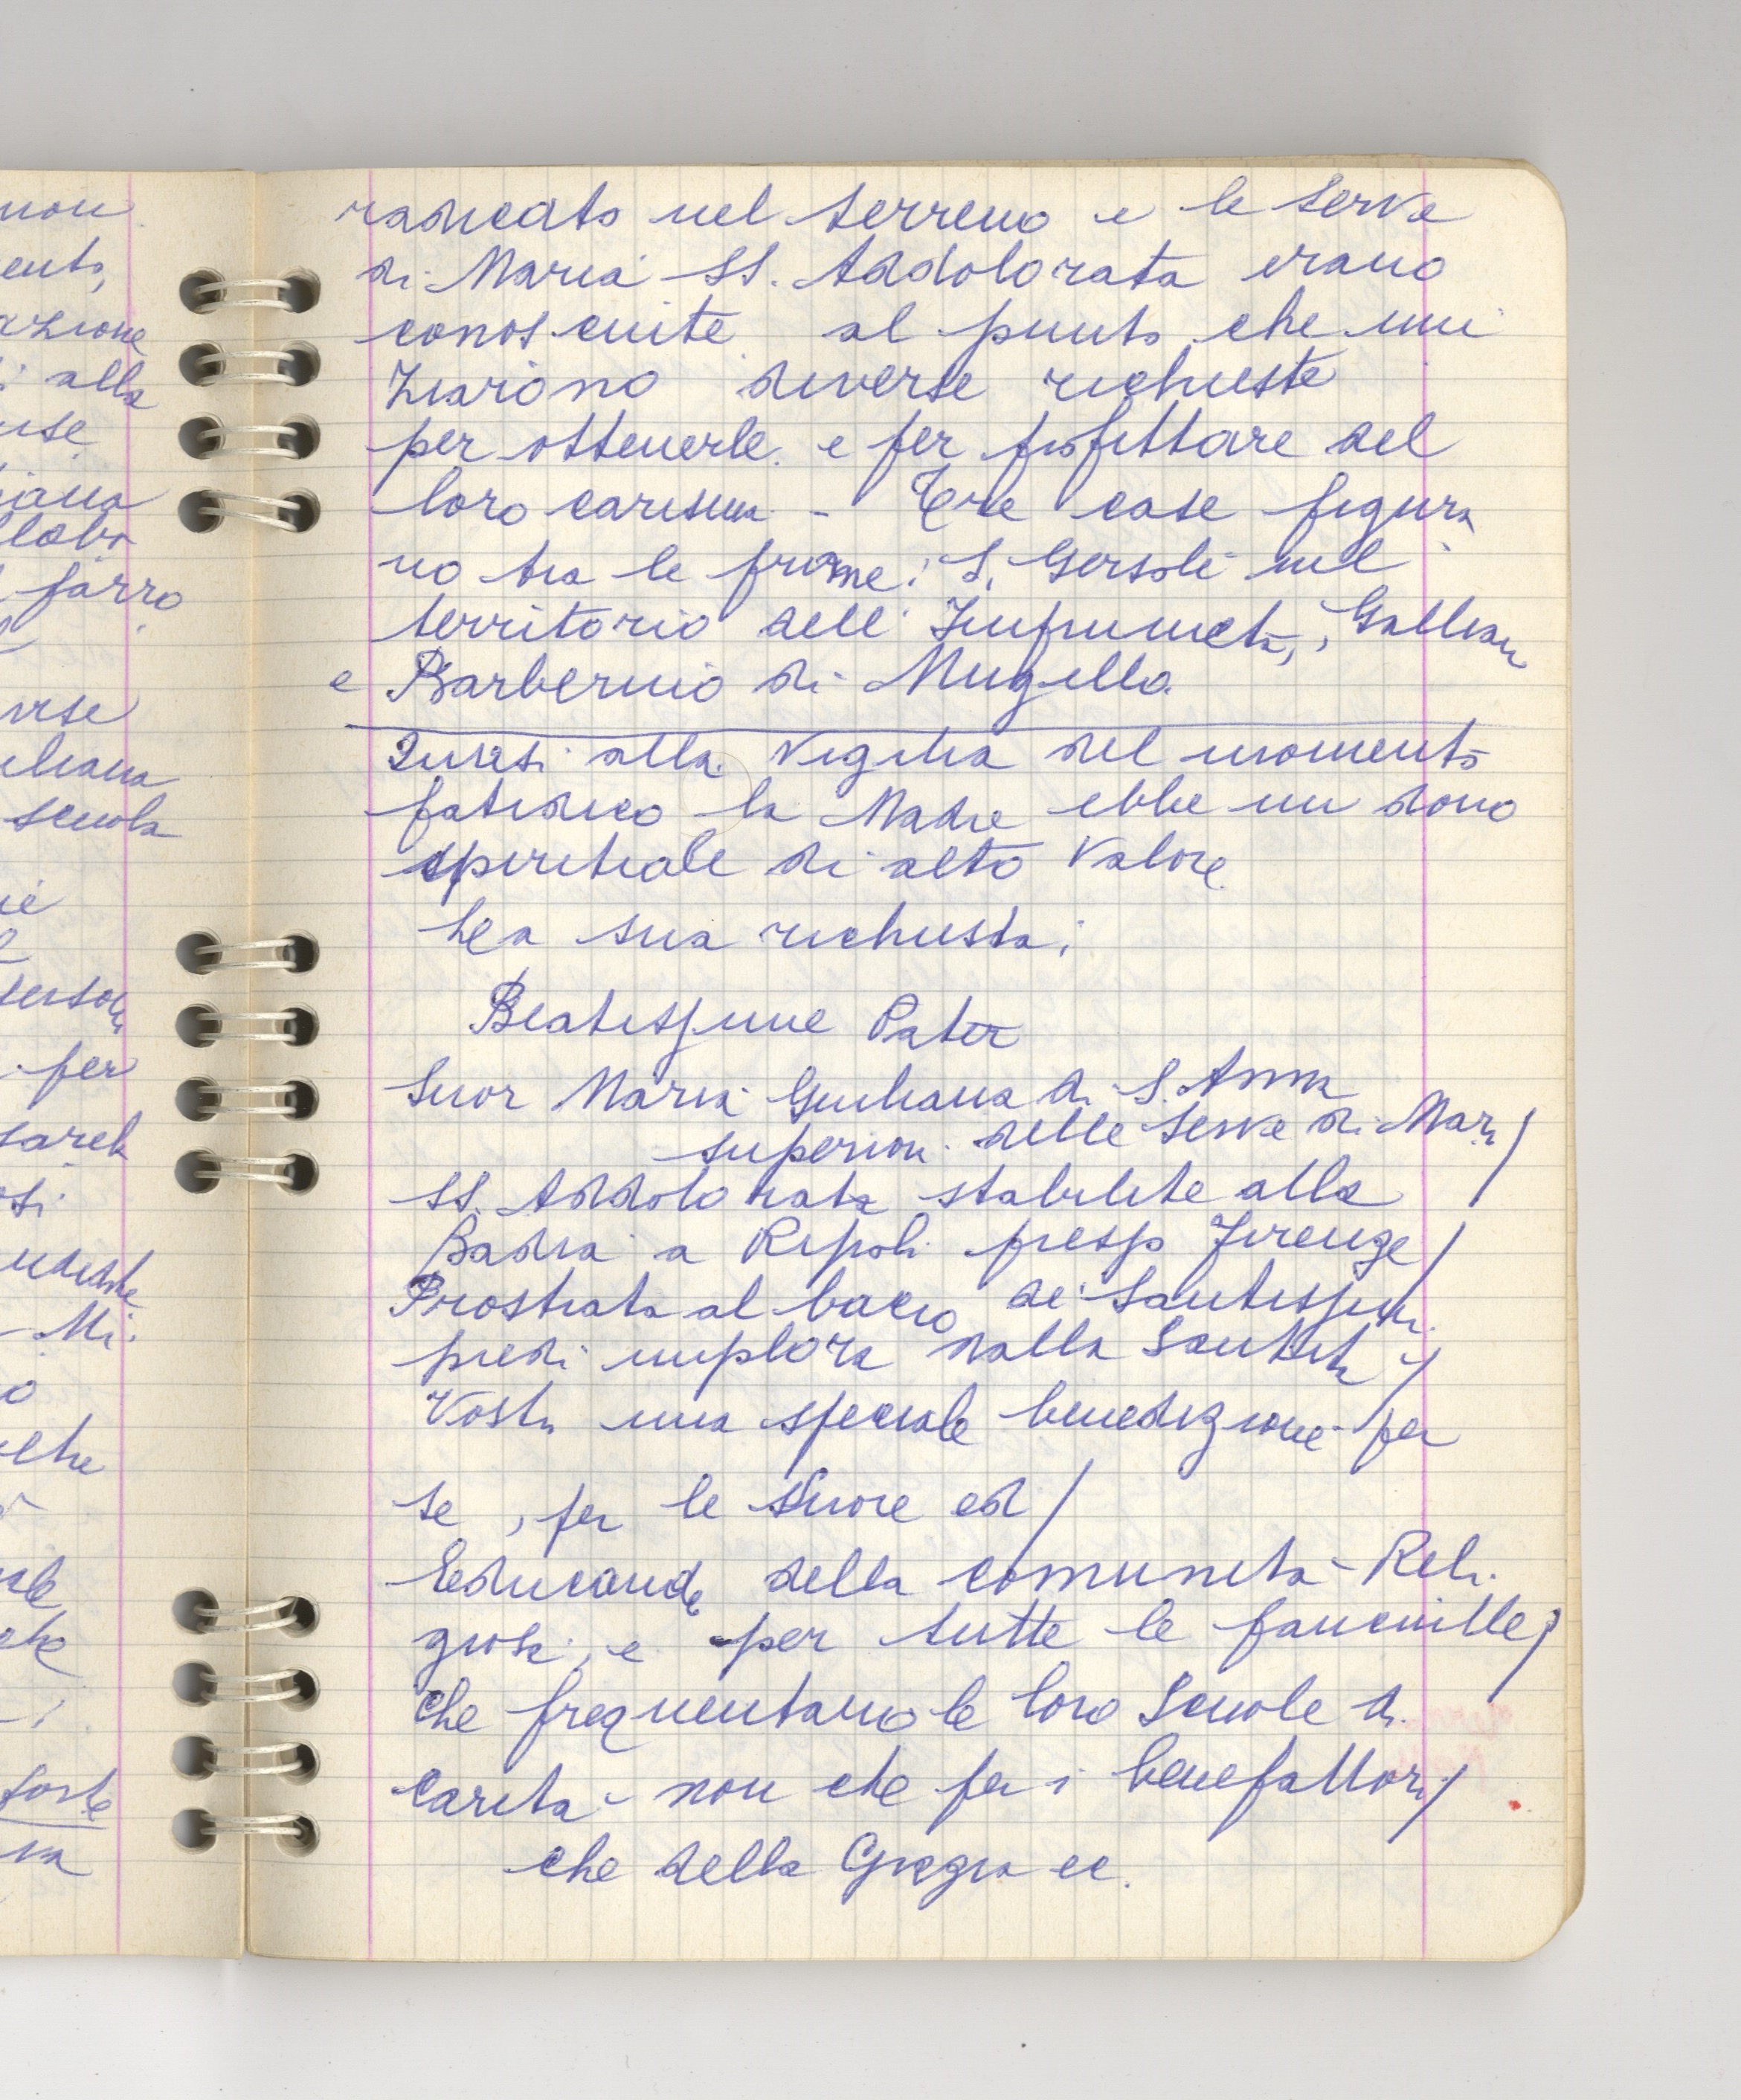 radicato nel terreno e le Serve
di Maria SS. Addolorata erano
conosciute al punto che ini
ziarono diverse richieste
per ottenerle e per profittare del
loro carisma - Tre case figura
no tra le prime: S. Gersolè nel
territorio dell' Impruneta, Galliano
e Barberino di Mugello
Quasi alla Vigilia del momento
fatidico la Madre ebbe un dono
spirituale di alto Valore
La sua richiesta:
Beatissime Pater
Suor Maria Giuliana di S. Anna
superiora delle Serve di Maria /
SS. Addolorata stabilite alla
Badia a Ripoli presso Firenze /
Prostrata al bacio dei Santissimi
piedi implora dalla Santità /
Vostra una speciale benedizione per
se, per le Suore ed /
Educande della comunità Reli
giosa, e per tutte le fanciulle /
che frequentano le loro Scuole di
Carità non che per i benefattori /
che della Grazia ec.
non
ento,
azione
alla
farro
giuliana
scuola
per
Mi
forte